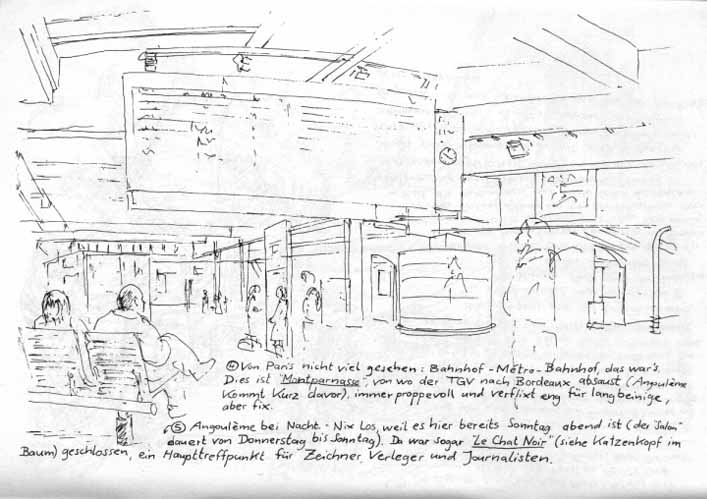 ④ Von Paris nicht viel gesehen: Bahnhof - Métro - Bahnhof, das war's.
Dies ist "Montparnasse", von wo der TGV nach Bordeaux absaust (Angoulême
kommt kurz davor). immer proppevoll und verflixt eng für langbeinige,
aber fix.
⑤ Angoulême bei Nacht. - Nix Los, weil es hier bereits Sonntag abend ist (der "Salon"
dauert von Donnerstag bis Sonntag). Da war sogar "Le Chat Noir" (siehe Katzenkopf im
Baum) geschlossen, ein Haupttreffpunkt für Zeichner, Verleger und Journalisten.